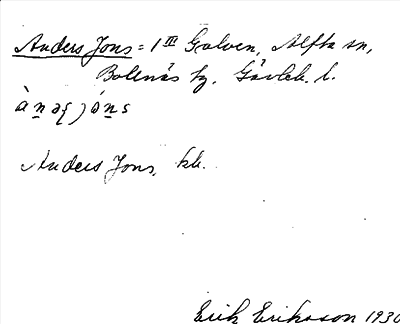 Anders Jons = 1 III Galven, Alfta sn,
Bollnäs tg. Gävleb. l.
Anders Jons, kb.
Erik Eriksson 1930